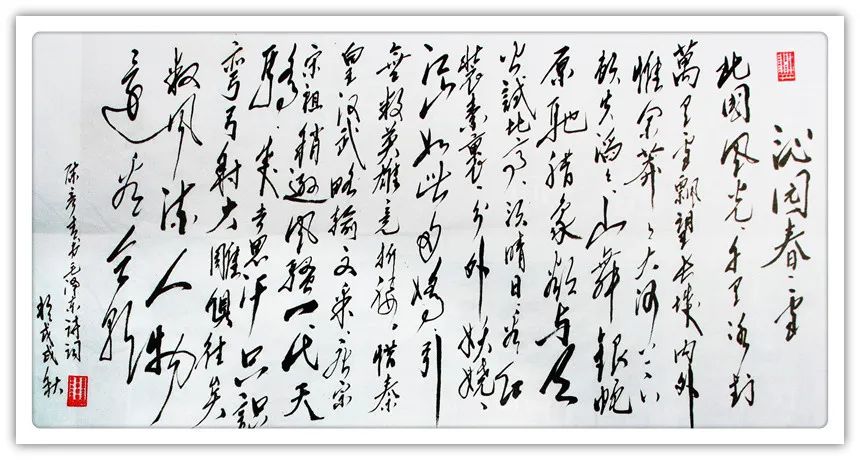 沁园春雪
北国风光千里冰封
萬里雪飘望长城内外
惟余莽々大河上下
顿失滔々山舞银蛇
原驰腊象欲与天
公试比高须晴日看红
装素裹分外妖娆
江山如此多娇引
無数英雄竞折腰惜秦
皇汉武略输文采唐宗
宋祖稍逊风骚一代天
骄成吉思汗只识
弯弓射大雕俱往矣
数风流人物
还看今朝
书毛泽东诗词
於戊戌秋